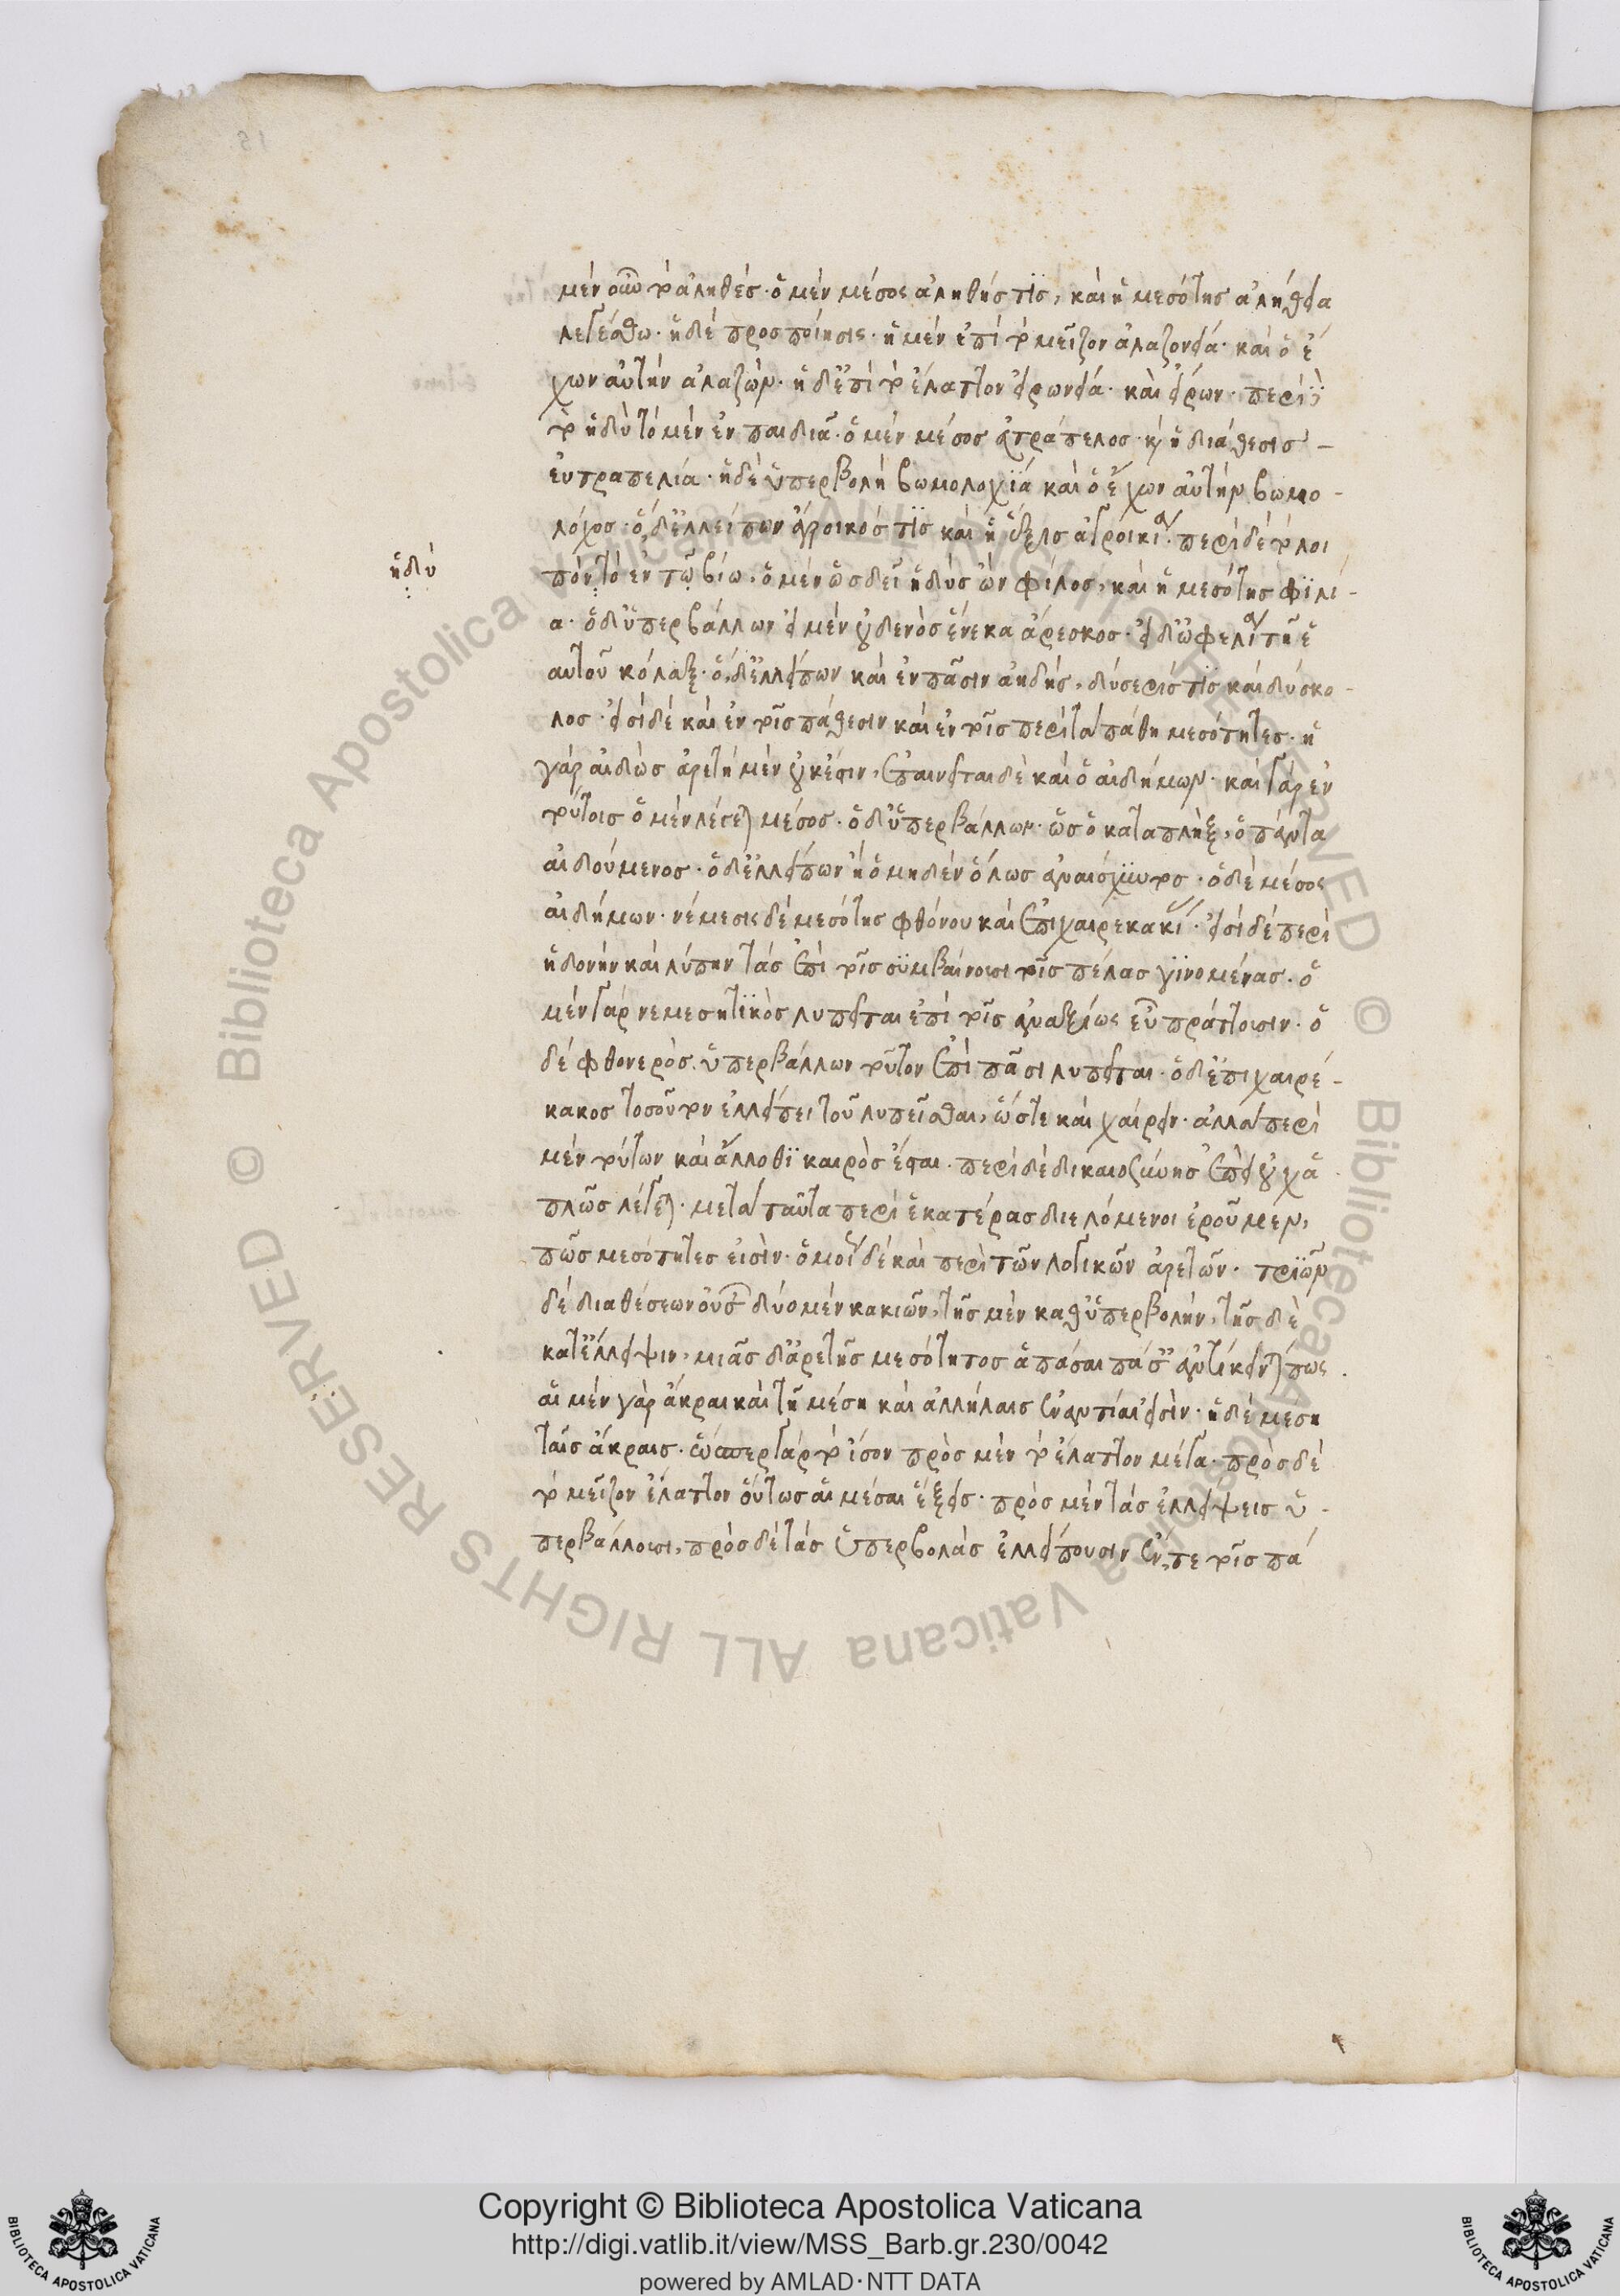 μὲν οὖν τὸ ἀληθές· ὁ μὲν μέσος ἀληθής τις, καὶ ἡ μεσότης ἀλήθεια
λεγέσθω· ἡ δὲ προσποίησις· ἡ μὲν ἐπὶ τὸ μεῖζον ἀλαζονεία· καὶ ὁ ἔ
χων αὐτὴν ἀλαζών· ἡ δ' ἐπὶ τὸ ἔλαττον εἰρωνεία· καὶ εἴρων· περὶ
τὸ ἡδὺ τὸ μὲν ἐν παιδιᾶ· ὁ μὲν μέσος εὐτράπελος· κ' ἡ διάθεσις -
εὐτραπελία· ἡ δὲ ὑπερβολὴ βωμολοχία καὶ ὁ ἔχων αὐτὴν βωμο -
λόχος· ὁ δ' ἐλλείπων ἄγροικός τις καὶ ἡ ἕξις ἀγροικία· περὶ δὲ τὸ λοι
πὸν τὸ ἐν τῷ βίω, ὁ μὲν ὡς δεῖ ἡδὺς ὢν φίλος, καὶ ἡ μεσότης φιλί -
ἡδύ
α· ὁ δ' ὑπερβάλλων εἰ μὲν οὐδενὸς ἕνεκα ἄρεσκος· εἰ δ' ὠφελείας τῆς ἑ
αυτοῦ κόλαξ· ὁ δ' ἐλλείπων καὶ ἐν πᾶσιν ἀηδής, δύσερίς τις καὶ δύσκο -
λος· εἰσὶ δὲ καὶ ἐν τοῖς πάθεσιν καὶ ἐν τοῖς περὶ τὰ πάθη μεσότητες· ἡ
γὰρ αἰδὼς ἀρετὴ μὲν οὐκ ἔστιν, ἐπαινεῖται δὲ καὶ ὁ αἰδήμων· καὶ γὰρ ἐν
τούτοις ὁ μὲν λέγεται μέσος· ὁ δ' ὑπερβάλλων· ὡς ὁ καταπλὴξ, ὁ πάντα
αἰδούμενος· ὁ δ' ἐλλείπων ἢ ὁ μηδὲν ὅλως ἀναίσχυντος· ὁ δὲ μέσος
αἰδήμων· νέμεσις δὲ μεσότης φθόνου καὶ ἐπιχαιρεκακίας· εἰσὶ δὲ περὶ
ἡδονὴν καὶ λύπην τὰς ἐπὶ τοῖς συμβαίνουσι τοῖς πέλας γινομένας· ὁ
μὲν γὰρ νεμεσητικὸς λυπεῖται ἐπὶ τοῖς ἀναξίως εὖ πράττουσιν· ὁ
δὲ φθονερὸς ὑπερβάλλων τοῦτον ἐπὶ πᾶσι λυπεῖται· ὁ δ' ἐπιχαιρέ -
κακος τοσοῦτον ἐλλείπει τοῦ λυπεῖσθαι, ὥστε καὶ χαίρειν· ἀλλὰ περὶ
μὲν τούτων καὶ ἄλλοθι καιρὸς ἔσται· περὶ δὲ δικαιοσύνης ἐπεὶ οὐχ ἁ
πλῶς λέγεται· μετὰ ταῦτα περὶ ἑκατέρας διελόμενοι ἐροῦμεν,
πῶς μεσότητες εἰσὶν· ὁμοίως δὲ καὶ περὶ τῶν λογικῶν ἀρετῶν· τριῶν
δὲ διαθέσεων οὐσῶν δύο μὲν κακιῶν, τῆς μὲν καθ' ὑπερβολήν, τῆς δὲ
κατ' ἔλλειψιν, μιᾶς δ' ἀρετῆς μεσότητος ἁπάσαι πάσαις ἀντίκεινται πως
αἱ μὲν γὰρ ἄκραι καὶ τῇ μέση καὶ ἀλλήλαις ἐναντίαι εἰσὶν· ἡ δὲ μεση
ταῖς ἄκραις· ὥσπερ γὰρ τὸ ἴσον πρὸς μὲν τὸ ἔλαττον μέγα· πρὸς δὲ
τὸ μεῖζον ἔλαττον οὕτως αἱ μέσαι ἕξεις· πρὸς μὲν τὰς ἐλλείψεις ὑ -
περβάλλουσι, πρὸς δὲ τὰς ὑπερβολὰς ἐλλείπουσιν ἔν τε τοῖς πά
© Biblioteca Apostolica Vaticana ALL RIGHTS RESERVED
© Biblioteca Apostolica Vaticana ALL RIGHTS RESERVED
Copyright © Biblioteca Apostolica Vaticana
http://digi.vatlib.it/view/MSS_Barb.gr.230/0042
powered by AMLAD·NTT DATA
BIBLIOTECA APOSTOLICA VATICANA
BIBLIOTECA APOSTOLICA VATICANA